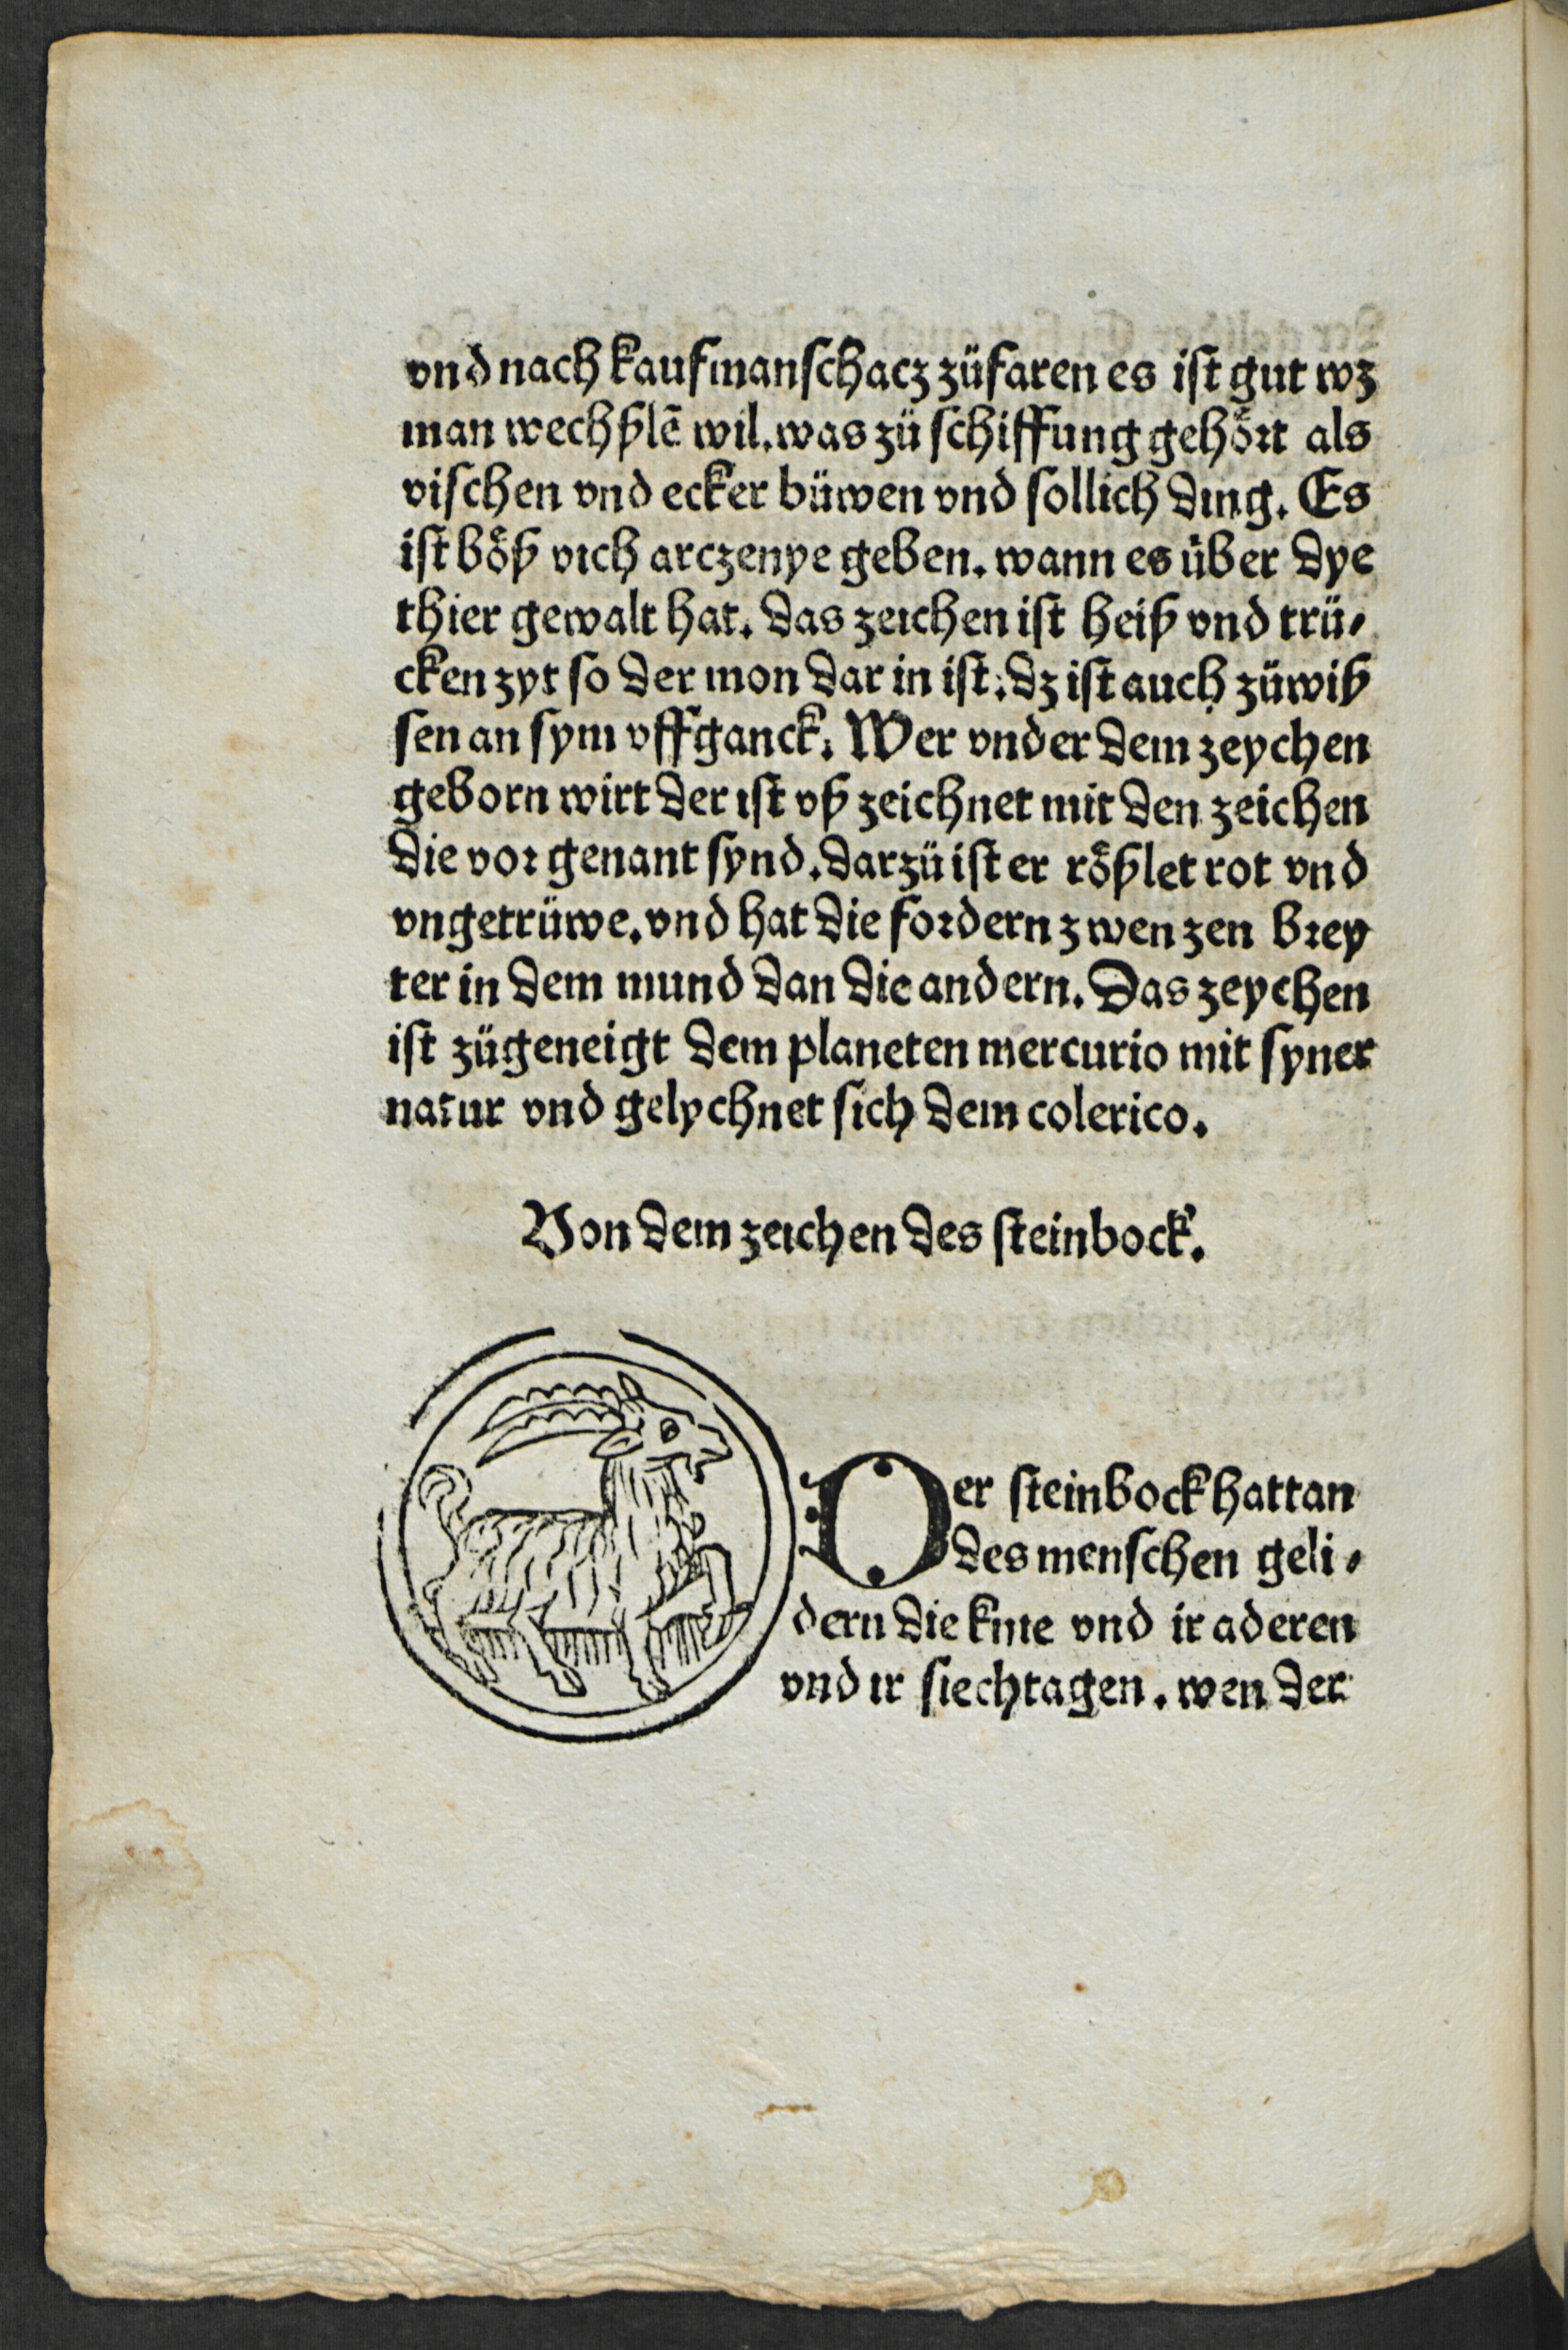 vnd nach kaufmanschacz züfaren es ist gut wz
man wechßlē wil. was zü schiffung gehört als
vischen vnd ecker büwen vnd sollich ding. Es
ist böß vich arczenye geben. wann es über dye
thier gewalt hat. das zeichen ist heiß vnd trü⸗
cken zyt so der mon dar in ist. dz ist auch züwiß
sen an sym vffganck. Wer vnder dem zeychen
geborn wirt der ist vß zeichnet mit den zeichen
die vor genant synd. darzü ist er rößlet rot vnd
vngetrüwe. vnd hat die fordern zwen zen brey
ter in dem mund dan die andern. Das zeychen
ist zügeneigt dem planeten mercurio mit syner
natur vnd gelychnet sich dem colerico.
Von dem zeichen des steinbock.
Der steinbock hat tan
des menschen geli⸗
dern die knie vnd ir aderen
vnd ir siechtagen. wen der